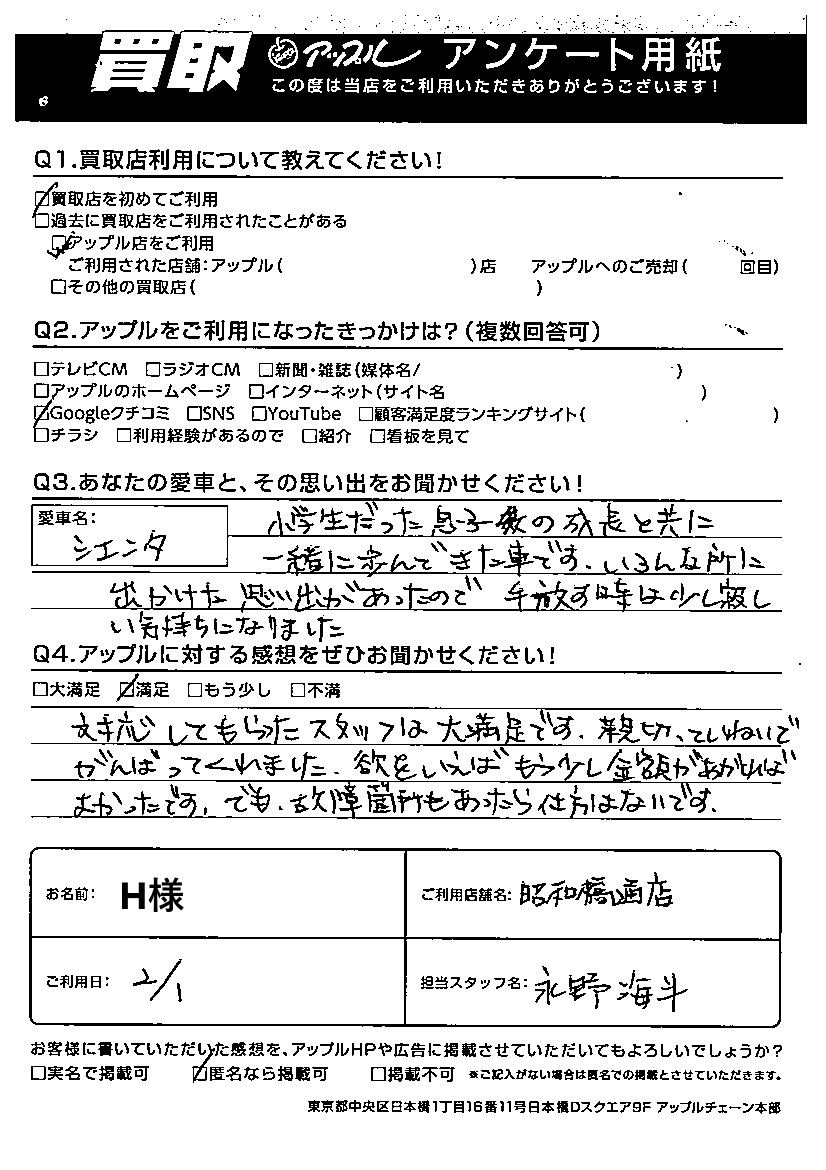 買取 アップル アンケート用紙
この度は当店をご利用いただきありがとうございます!
Q1.買取店利用について教えてください!
☑買取店を初めてご利用
□過去に買取店をご利用されたことがある
☑アップル店をご利用
ご利用された店舗:アップル( )店 アップルへのご売却( 回目)
□その他の買取店( )
Q2.アップルをご利用になったきっかけは?(複数回答可)
□テレビCM □ラジオCM □新聞・雑誌(媒体名/ )
□アップルのホームページ □インターネット(サイト名 )
☑Googleクチコミ □SNS □YouTube □顧客満足度ランキングサイト( )
□チラシ □利用経験があるので □紹介 □看板を見て
Q3.あなたの愛車と、その思い出をお聞かせください!
愛車名:
シエンタ
小学生だった息子達の成長と共に
一緒に歩んできた車です。いろんな所に
出かけた思い出があったので 手放す時は少し寂し
い気持ちになりました
Q4.アップルに対する感想をぜひお聞かせください!
□大満足 ☑満足 □もう少し □不満
対応してもらったスタッフは大満足です。親切、ていねいで
がんばってくれました。欲をいえばもう少し金額があがれば
よかったです。でも、故障箇所もあったら仕方はないです。
お名前: H様 ご利用店舗名: 昭和橋通店
ご利用日: 2/1 担当スタッフ名: 永野海斗
お客様に書いていただいた感想を、アップルHPや広告に掲載させていただいてもよろしいでしょうか?
□実名で掲載可 ☑匿名なら掲載可 □掲載不可 ※ご記入がない場合は匿名での掲載とさせていただきます。
東京都中央区日本橋1丁目16番11号日本橋Dスクエア9F アップルチェーン本部